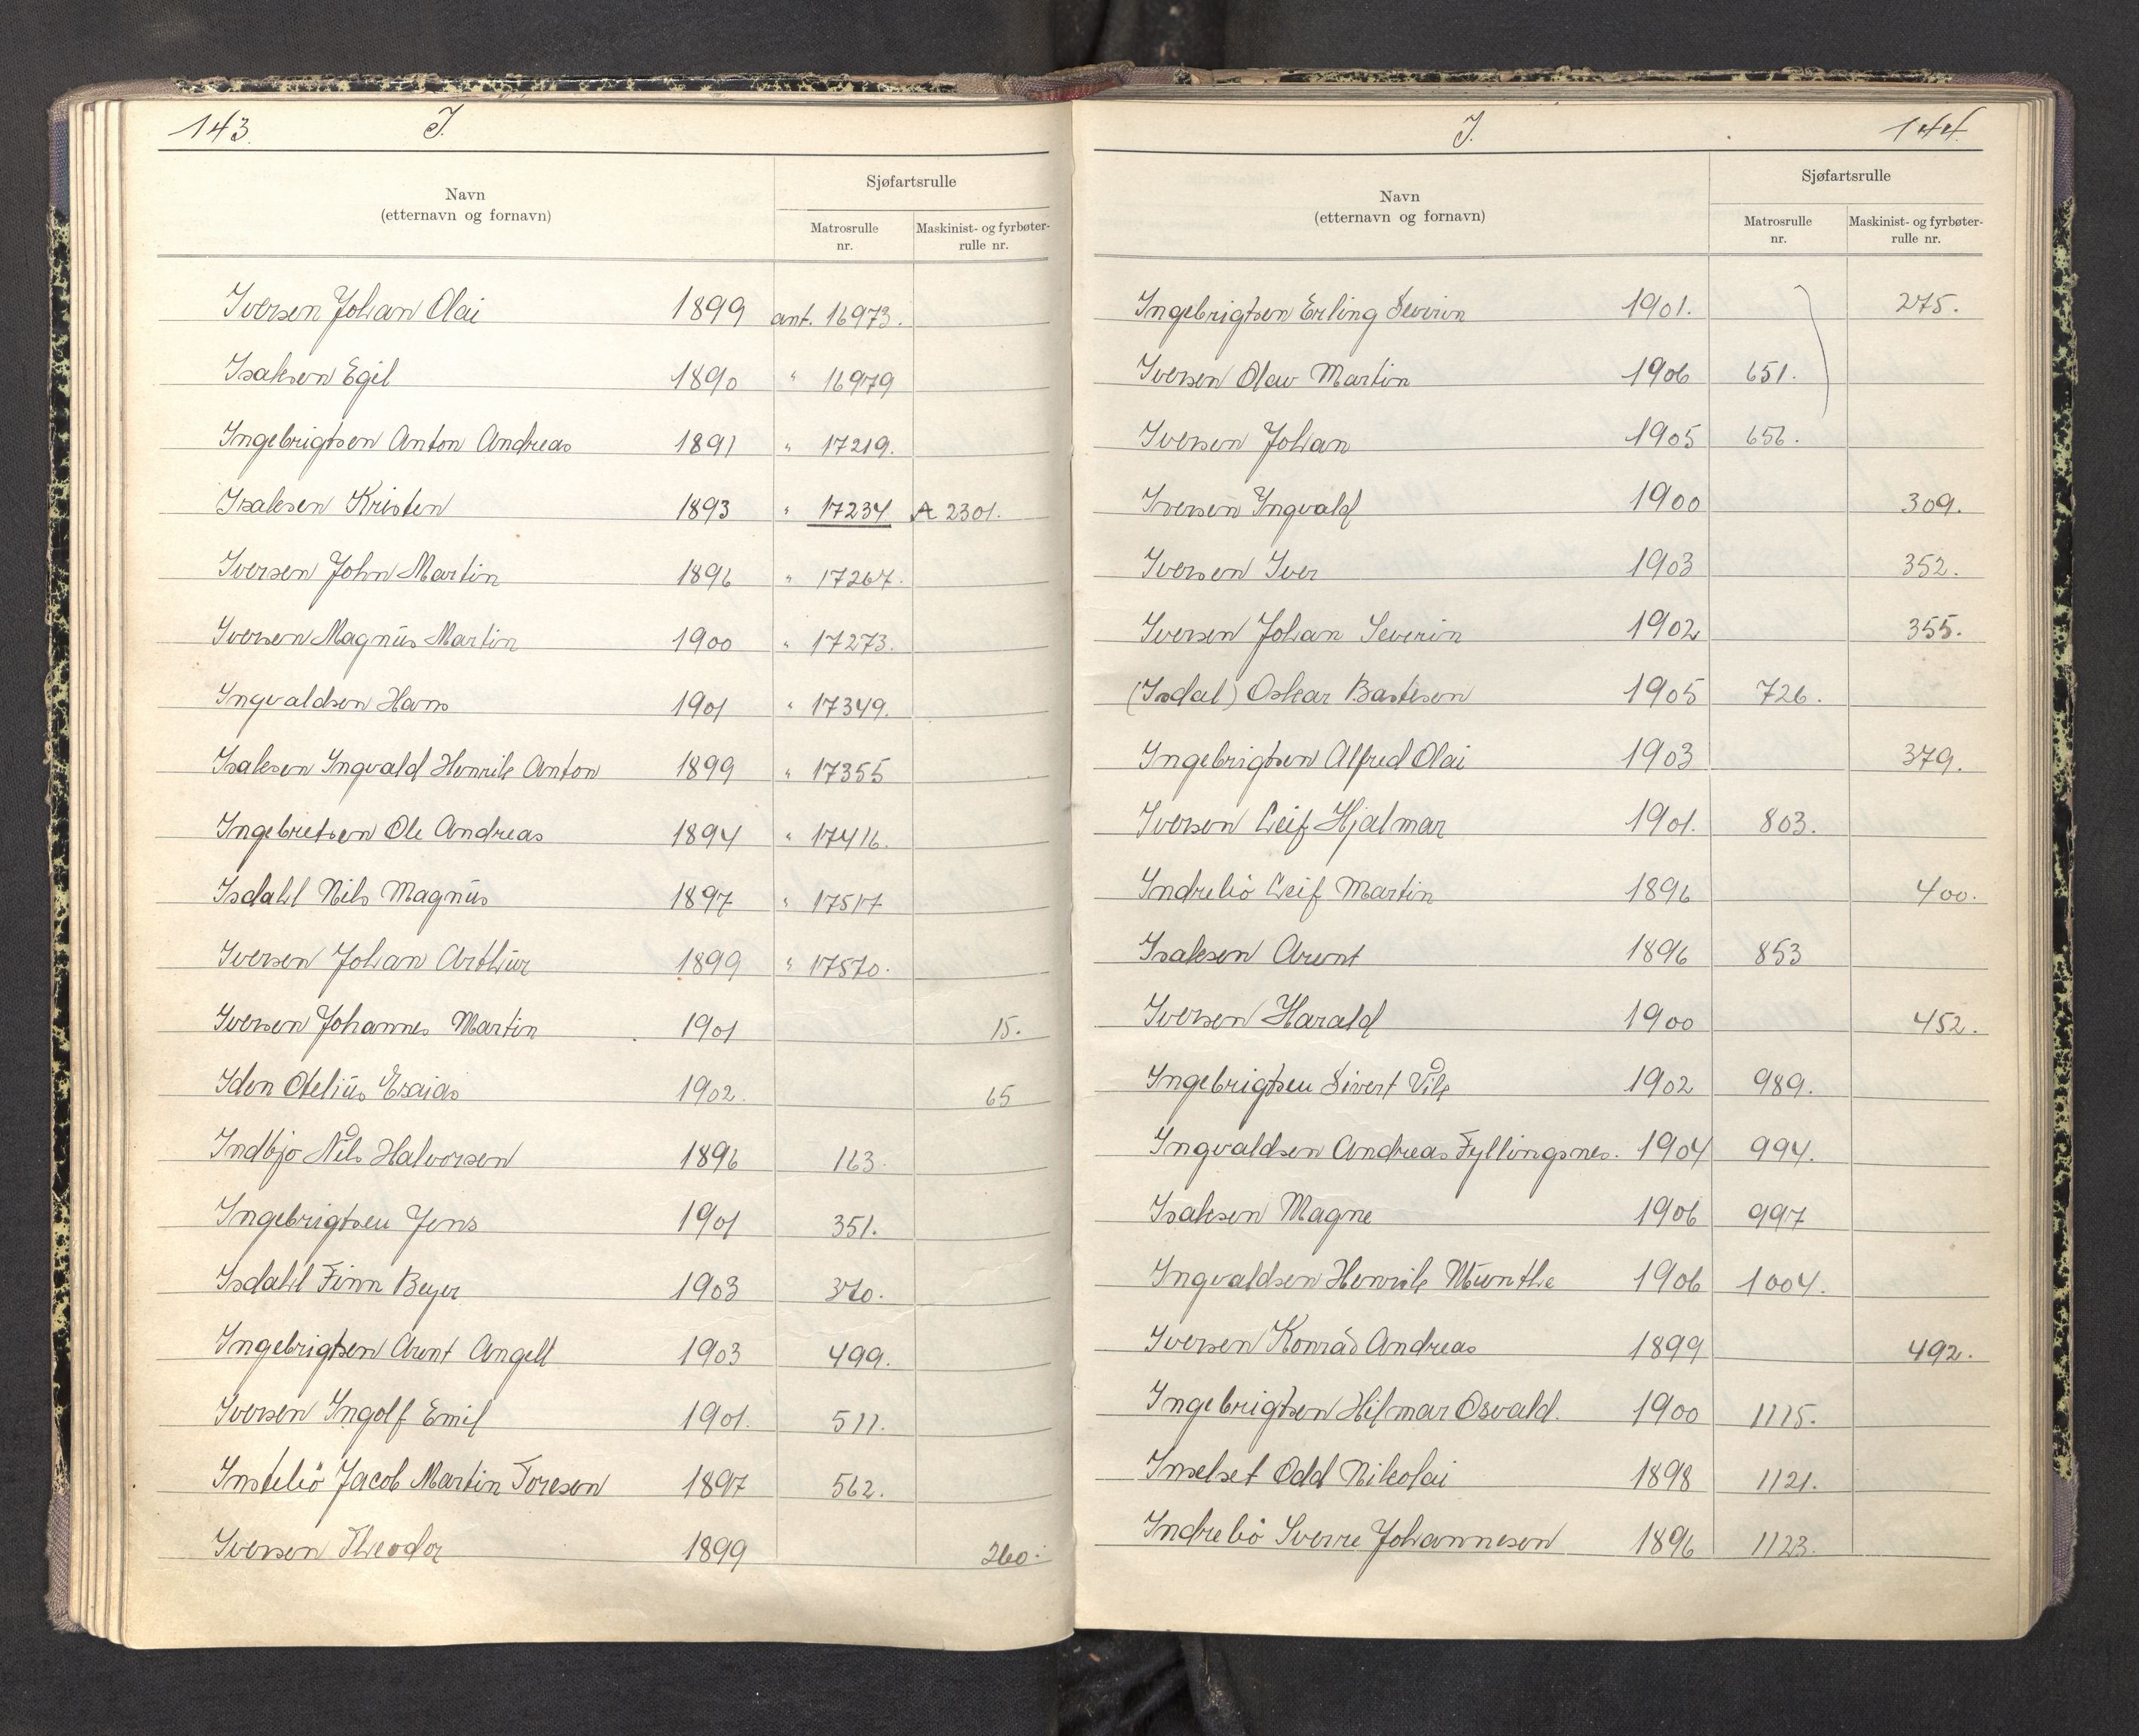 143. I.
Navn
(etternavn og fornavn)
Sjøfartsrulle
Matrosrulle nr.
Maskinist- og fyrbøter-rulle nr.
Iversen Johan Olai 1899 ant. 16973.
Isaksen Egil 1890 " 16979
Ingebrigtsen Anton Andreas 1891 " 17219.
Isaksen Kristen 1893 " 17234 A 2301.
Iversen John Martin 1896 " 17267.
Iversen Magnus Martin 1900 " 17273.
Ingvaldsen Hans 1901 " 17349.
Isaksen Ingvald Henrik Anton 1899 " 17355
Ingebretsen Ole Andreas 1894 " 17416.
Isdahl Nils Magnus 1897 " 17517
Iversen Johan Arthur 1899 " 17570.
Iversen Johannes Martin 1901 15.
Iden Otelius Esaias 1902. 65
Indbjo Nils Halvorsen 1896 163.
Ingebrigtsen Jens 1901 351.
Isdahl Finn Beyer 1903 370.
Ingebrigtsen Arent Angell 1903 499.
Iversen Ingolf Emil 1901. 511.
Instebö Jacob Martin Toresen 1897 562.
Iversen Theodor 1899 260.
I. 144.
Navn
(etternavn og fornavn)
Sjøfartsrulle
Matrosrulle nr.
Maskinist- og fyrbøter-rulle nr.
Ingebrigtsen Erling Severin 1901. 275.
Iversen Olav Martin 1906 651.
Iversen Johan 1905 656.
Iversen Ingvald 1900 309.
Iversen Iver 1903 352.
Iversen Johan Severin 1902 355.
(Isdal) Oskar Bastesen 1905 726.
Ingebrigtsen Alfred Olai 1903 379.
Iversen Leif Hjalmar 1901. 803.
Indrebö Leif Martin 1896 400.
Isaksen Arent 1896 853
Iversen Harald 1900 452.
Ingebrigtsen Sivert Vik 1902 989.
Ingvaldsen Andreas Fyllingsnes. 1904 994.
Isaksen Magne 1906 997
Ingvaldsen Henrik Munthe 1906 1004.
Iversen Konrad Andreas 1899 492.
Ingebrigtsen Hilmar Osvald. 1900 1115.
Inselset Odd Nikolai 1898 1121.
Indrebö Sverre Johannesen 1896 1123.